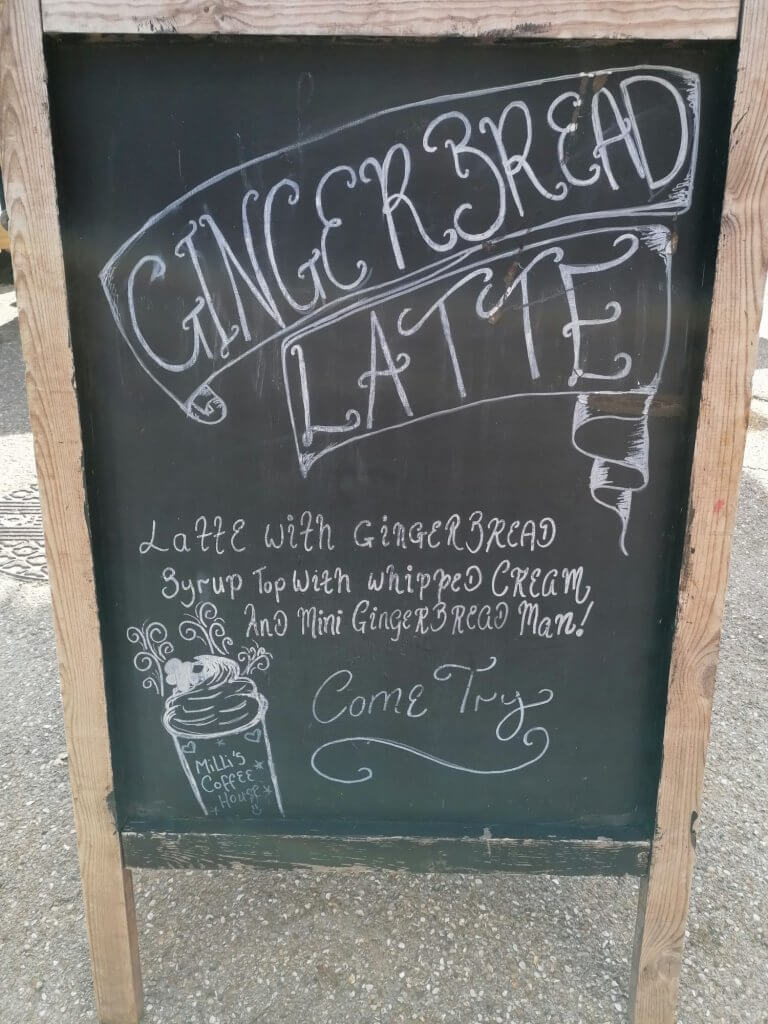 GINGERBREAD
LATTE
Latte with GingerBread
Syrup Top with whipped CREAM,
And Mini GingerBread Man!
Come Try
Milli's
Coffee
House